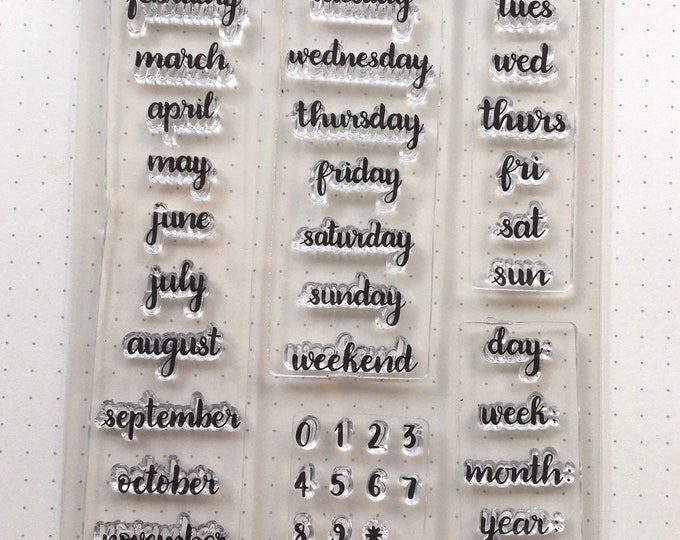 february
march
april
may
june
july
august
september
october
november
tuesday
wednesday
thursday
friday
saturday
sunday
weekend
0 1 2 3
4 5 6 7
8 9 *
tues
wed
thurs
fri
sat
sun
day:
week:
month:
year: